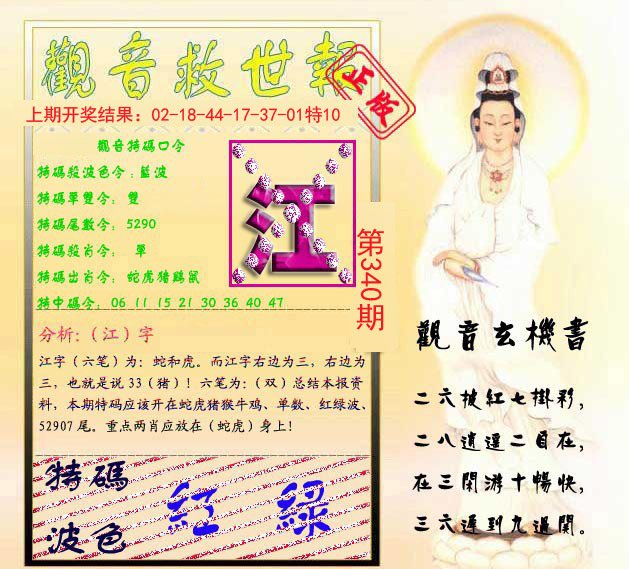 觀音救世報
正版
上期开奖结果：02-18-44-17-37-01特10
觀音特碼口令
特碼殺波色令：藍波
特碼單雙令： 雙
特碼尾數令： 5290
特碼殺肖令： 單
特碼出肖令： 蛇虎猪鷄鼠
特中碼令： 06 11 15 21 30 36 40 47
江
第340期
分析：（江）字
江字（六笔）为：蛇和虎。而江字右边为三，右边为
三，也就是说 33（猪）！六笔为：（双）总结本报资
料，本期特码应该开在蛇虎猪猴牛鸡、单数、红绿波、
52907 尾。重点两肖应放在（蛇虎）身上！
特碼
波色
紅 綠
觀音玄機書
二六披紅七掛彩，
二八逍遥二自在，
在三閑游十暢快，
三六遲到九過関。